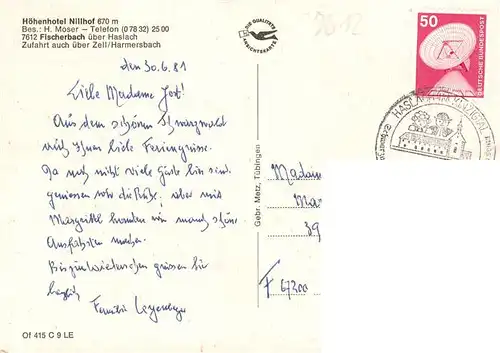 Höhenhotel Nillhof 670 m
Bes.: H. Moser – Telefon (0 78 32) 25 00
7612 Fischerbach über Haslach
Zufahrt auch über Zell/Harmersbach
DIE QUALITÄTS
ANSICHTSKARTE
50
DEUTSCHE BUNDESPOST
HASLACH IM KINZIGTAL
den 30.6.81
Liebe Madame Jost!
Aus dem schönen Schwarzwald
Ihnen liebe Feriengrüsse.
Da noch nicht viele Gäste hier sind
geniessen wir die Ruhe, aber mit
konnten wir manch schöne
Ausfahrten machen.
Bis zum Wiedersehen grüssen Sie
herzlich
Familie
Gebr. Metz, Tübingen
Madam
Ma
39
F 67200
Of 415 C 9 LE